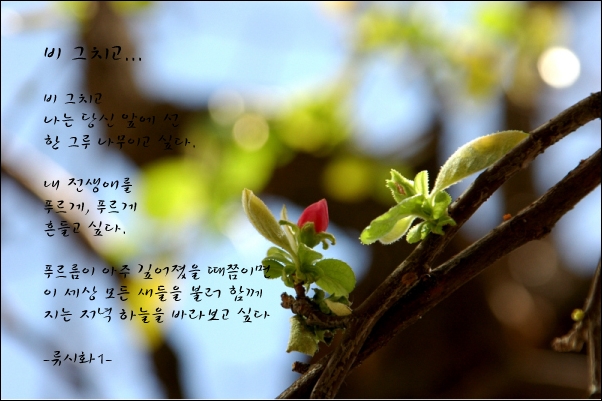 비 그치고...
비 그치고
나는 당신 앞에 선
한 그루 나무이고 싶다.
내 전생애를
푸르게, 푸르게
흔들고 싶다.
푸르름이 아주 깊어졌을 때쯤이면
이 세상 모든 새들을 불러 함께
지는 저녁 하늘을 바라보고 싶다
-류시화1-